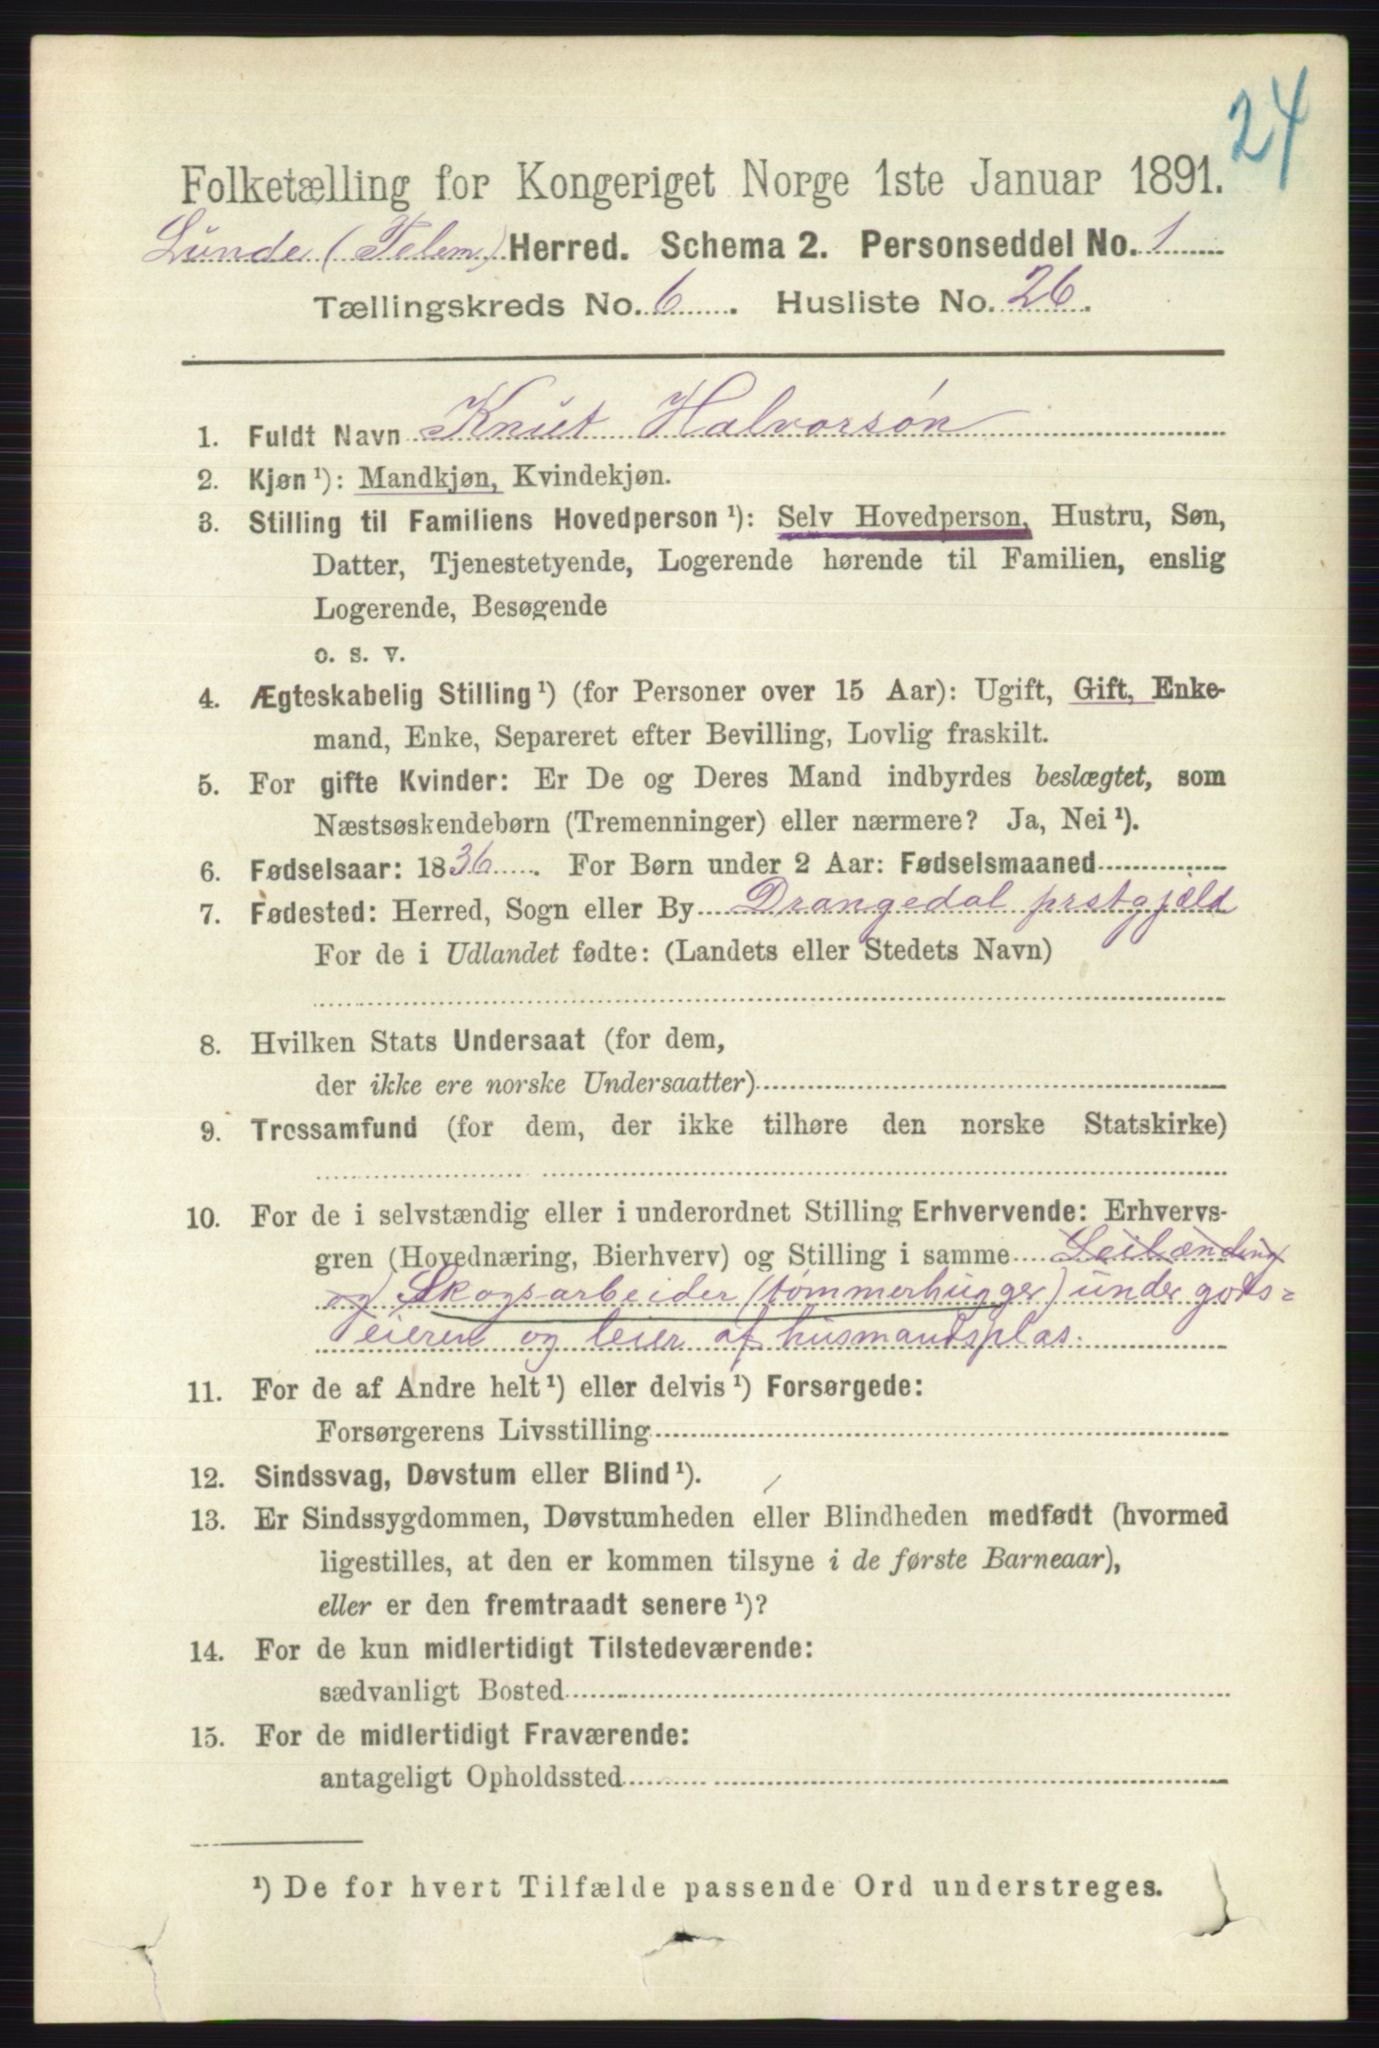 24
Folketælling for Kongeriget Norge 1ste Januar 1891.
Lunde (Telem) Herred. Schema 2. Personseddel No. 1
Tællingskreds No. 6. Husliste No. 26.
1. Fuldt Navn Knut Halvorsøn
2. Kjøn¹): Mandkjøn, Kvindekjøn.
3. Stilling til Familiens Hovedperson¹): Selv Hovedperson, Hustru, Søn,
Datter, Tjenestetyende, Logerende hørende til Familien, enslig
Logerende, Besøgende
o. s. v.
4. Ægteskabelig Stilling¹) (for Personer over 15 Aar): Ugift, Gift, Enke-
mand, Enke, Separeret efter Bevilling, Lovlig fraskilt.
5. For gifte Kvinder: Er De og Deres Mand indbyrdes beslægtet, som
Næstsøskendebørn (Tremenninger) eller nærmere? Ja, Nei¹).
6. Fødselsaar: 1836. For Børn under 2 Aar: Fødselsmaaned
7. Fødested: Herred, Sogn eller By Drangedal prstgjeld
For de i Udlandet fødte: (Landets eller Stedets Navn)
8. Hvilken Stats Undersaat (for dem,
der ikke ere norske Undersaatter)
9. Trossamfund (for dem, der ikke tilhøre den norske Statskirke)
10. For de i selvstændig eller i underordnet Stilling Erhvervende: Erhvervs-
gren (Hovednæring, Bierhverv) og Stilling i samme Leilænding
og Skogsarbeider (tømmerhugger) under gods=
eieren og leier af husmandsplas.
11. For de af Andre helt¹) eller delvis¹) Forsørgede:
Forsørgerens Livsstilling
12. Sindssvag, Døvstum eller Blind¹).
13. Er Sindssygdommen, Døvstumheden eller Blindheden medfødt (hvormed
ligestilles, at den er kommen tilsyne i de første Barneaar),
eller er den fremtraadt senere¹)?
14. For de kun midlertidigt Tilstedeværende:
sædvanligt Bosted
15. For de midlertidigt Fraværende:
antageligt Opholdssted
¹) De for hvert Tilfælde passende Ord understreges.